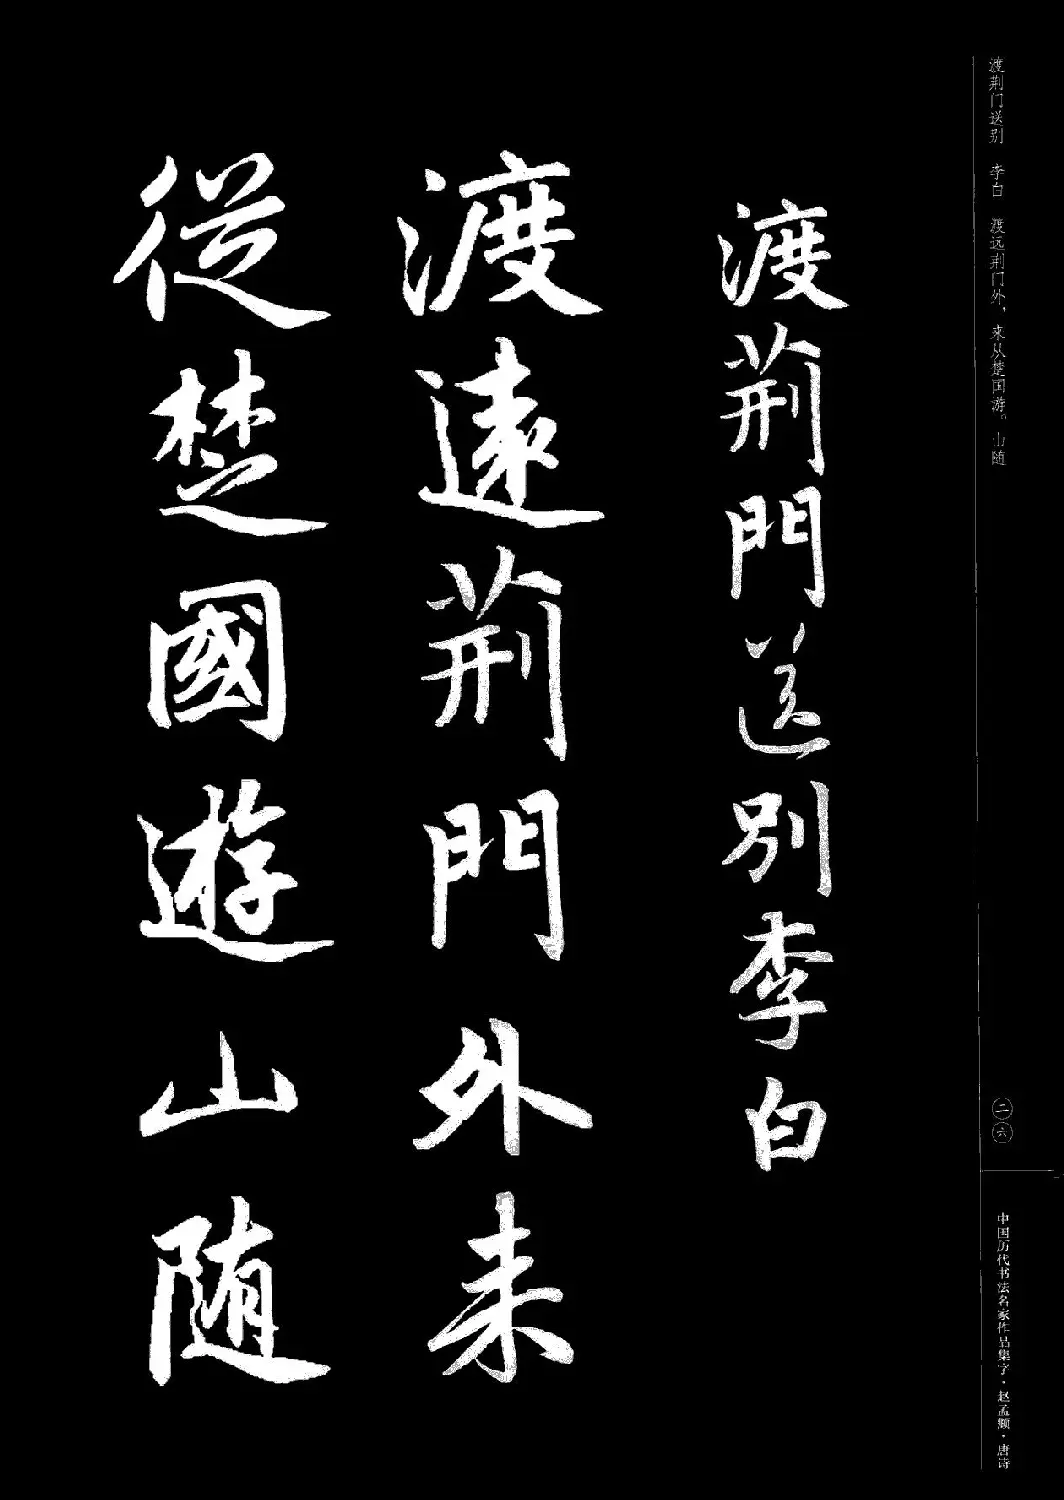 渡荆门送别　李白　渡远荆门外，来从楚国游。山随
渡荊門送別李白
渡遠荊門外来
從楚國遊山随
二六
中国历代书法名家作品集字·赵孟頫·唐诗